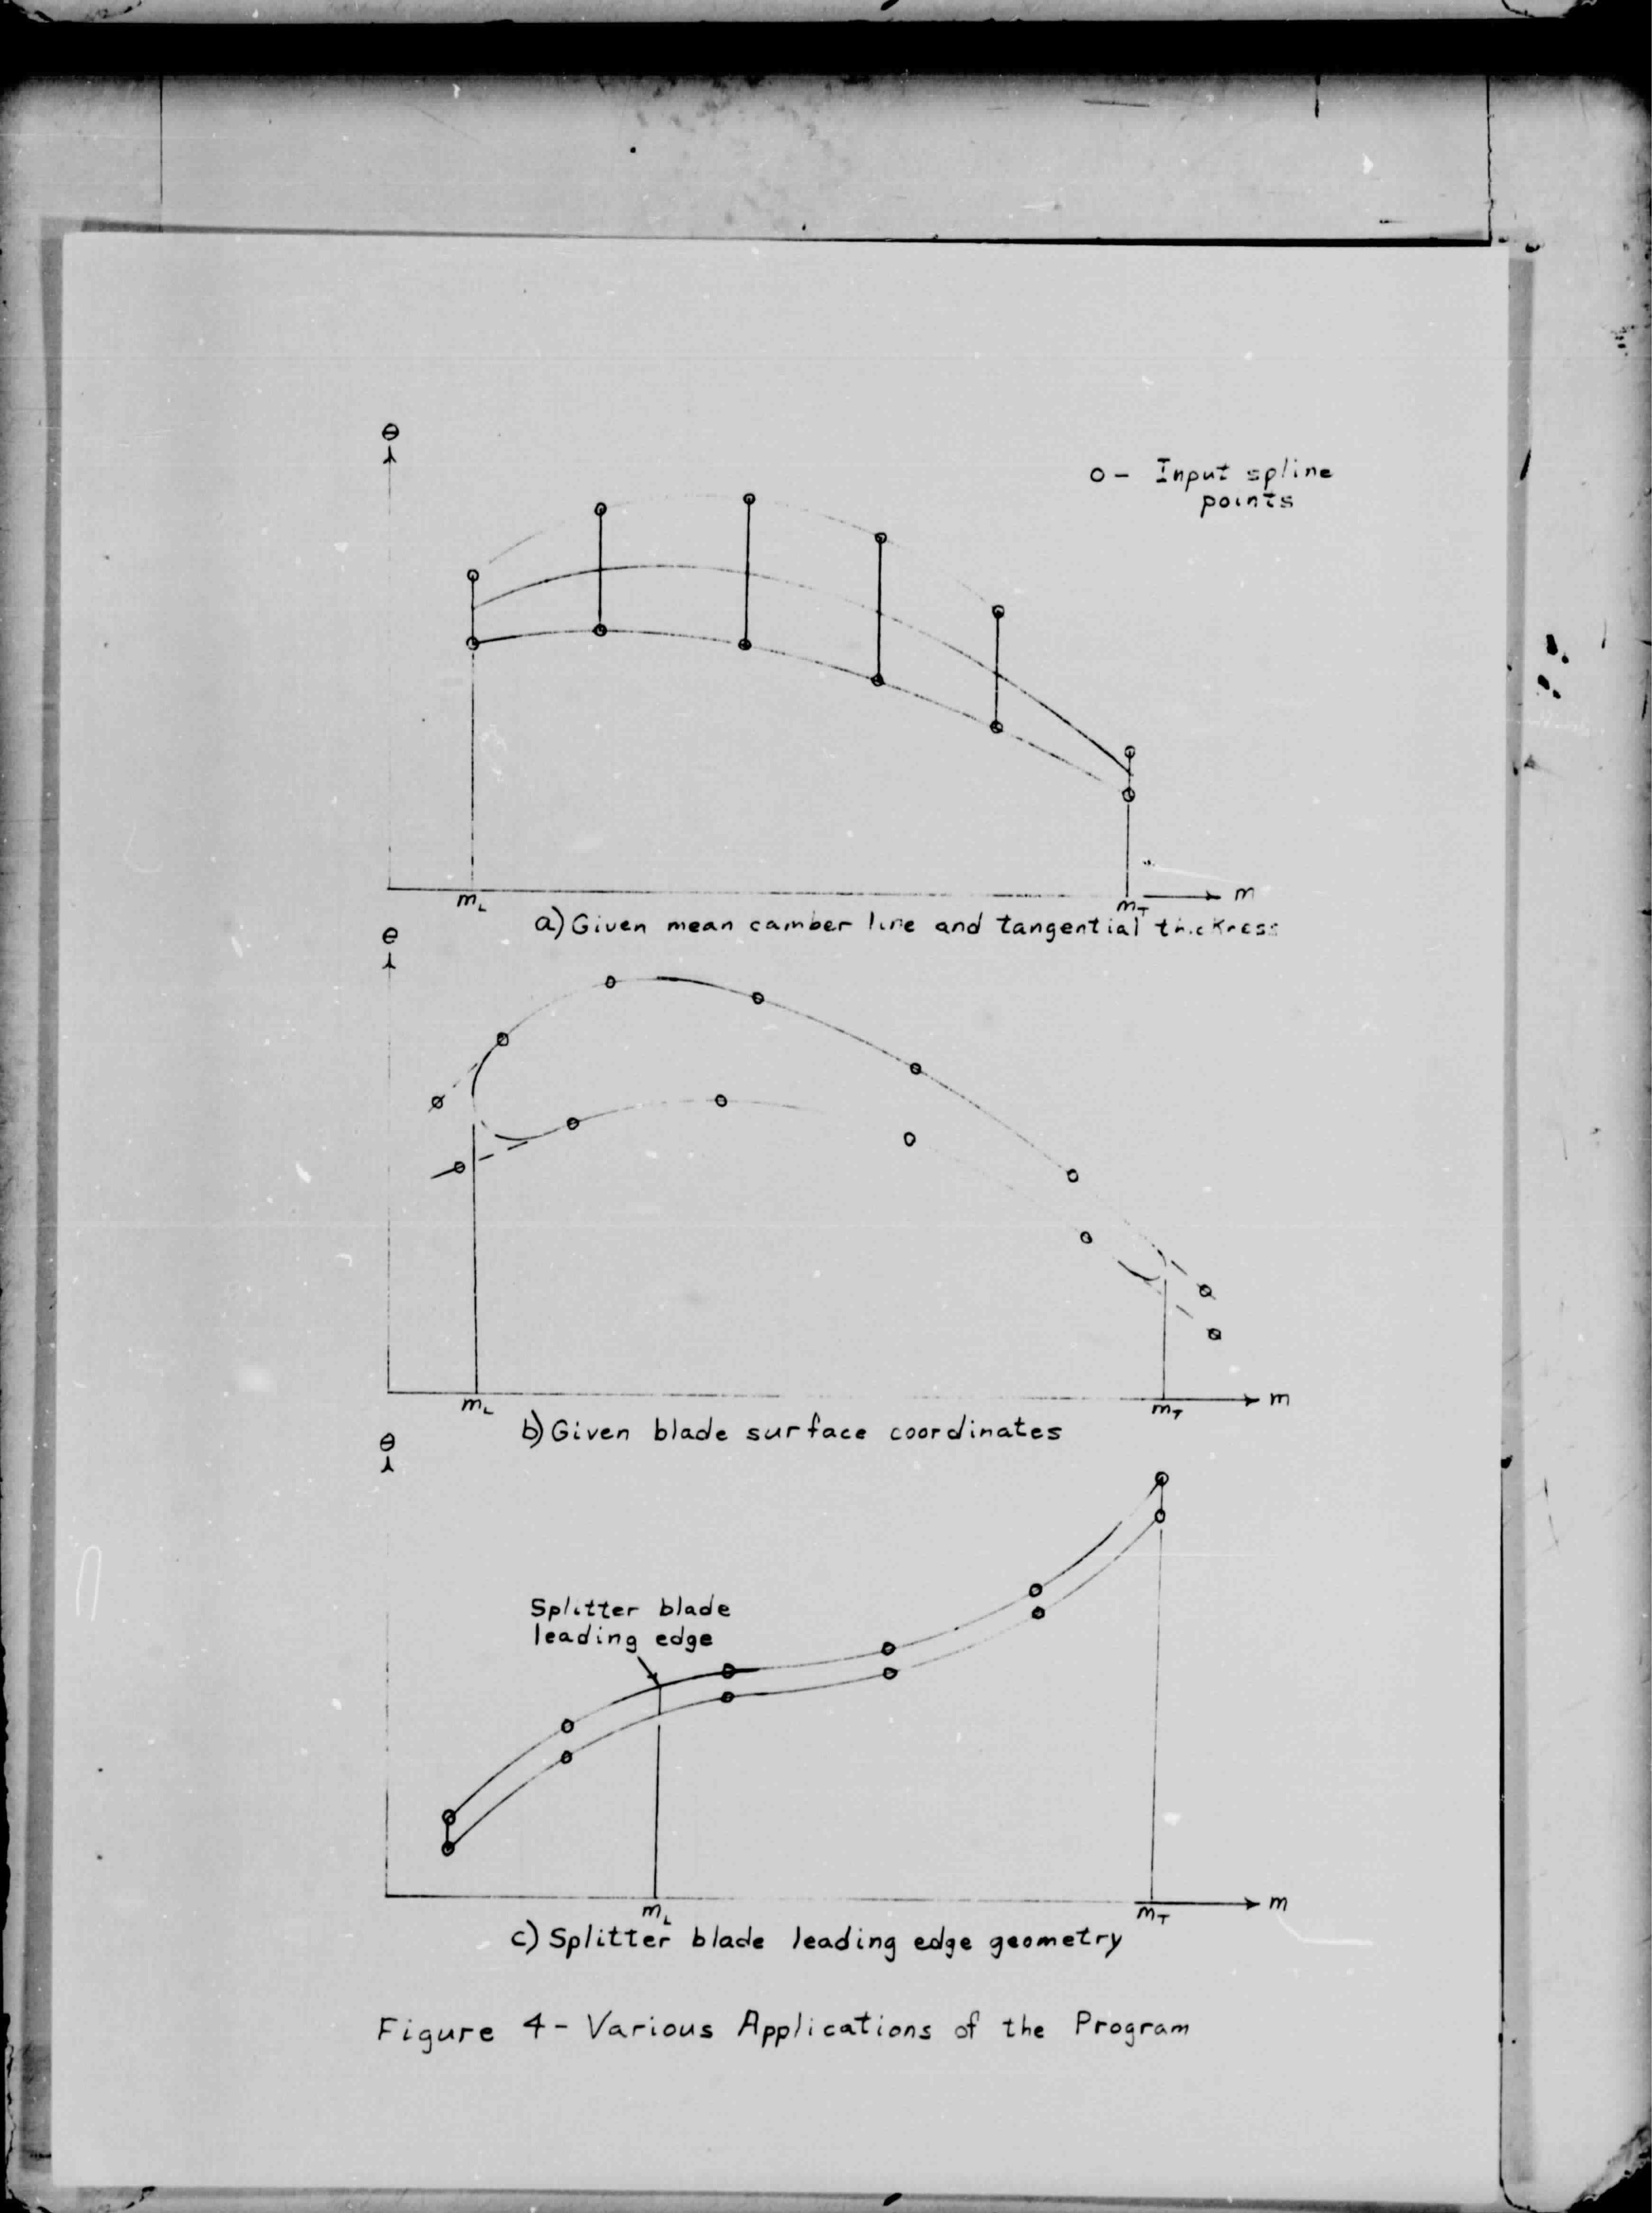 θ
o - Input spline
points
m
m_L
m_T
a) Given mean camber line and tangential thickness
θ
m
m_L
m_T
b) Given blade surface coordinates
θ
Splitter blade
leading edge
m
m_L
m_T
c) Splitter blade leading edge geometry
Figure 4 - Various Applications of the Program